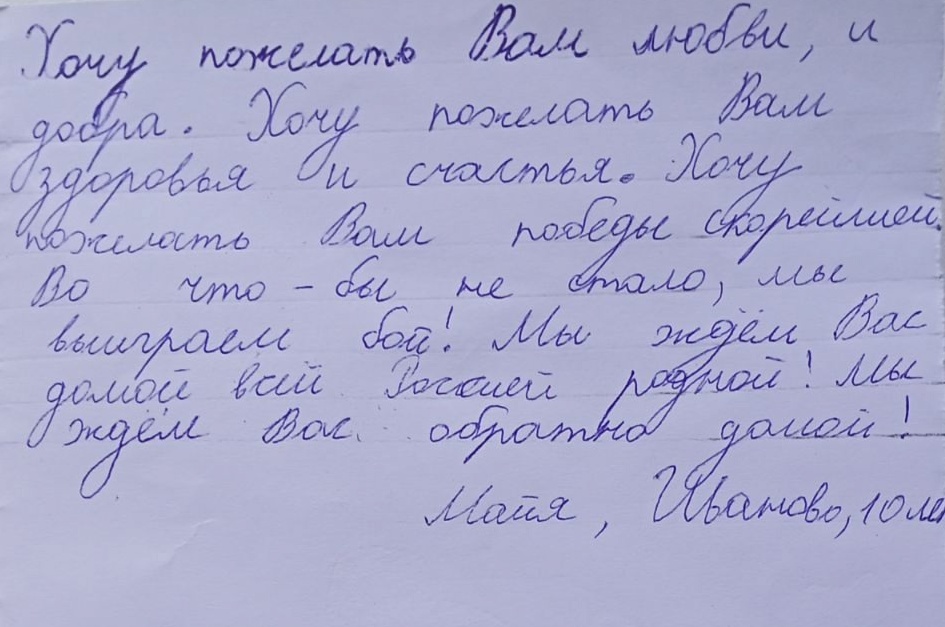 Хочу пожелать Вам любви, и
добра. Хочу пожелать Вам
здоровья и счастья. Хочу
пожелать Вам победы скорейшей.
Во что-бы не стало, мы
выиграем бой! Мы ждём Вас
домой всей Россией родной! Мы
ждём Вас обратно домой!
Майя, Иваново, 10 лет